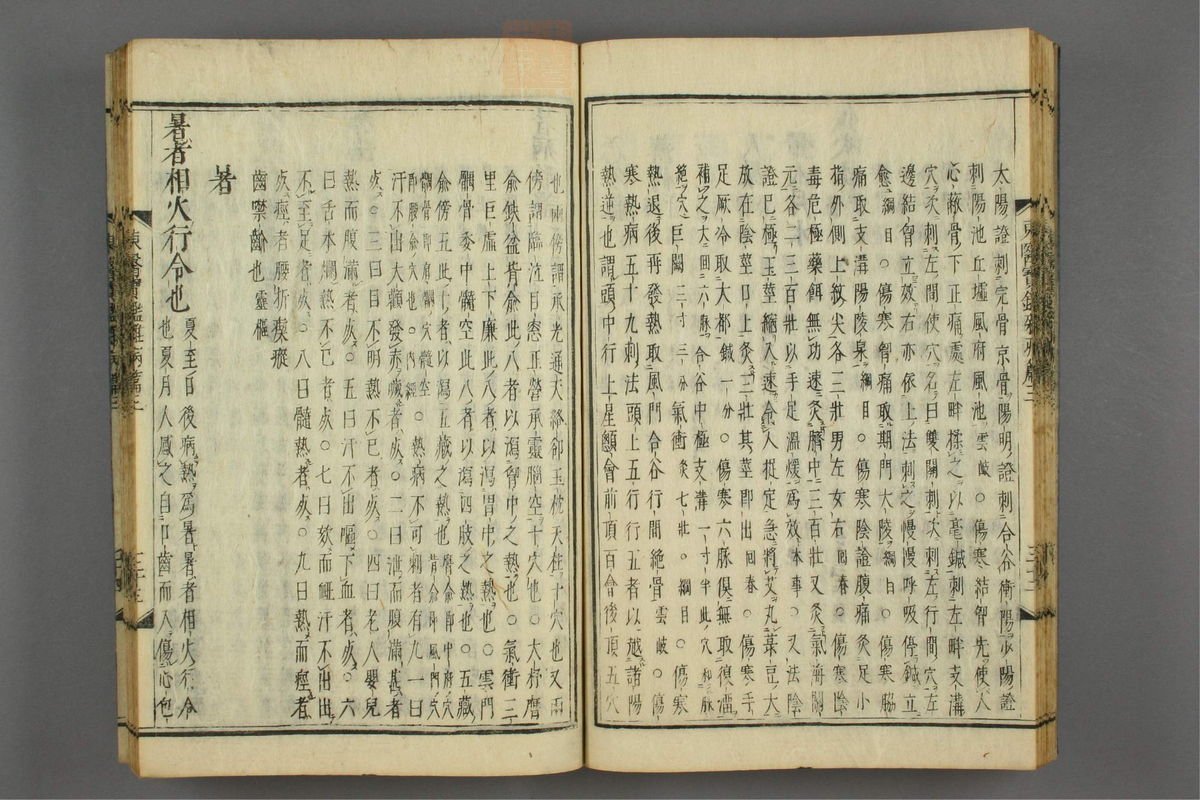 太陽證刺完骨京骨陽明證刺合谷衝陽少陽證
刺陽池丘墟風府風池雲岐○傷寒結胷先使人
心蔽骨下正痛處左畔揉之以毫鍼刺左畔支溝
穴次刺左間使穴名曰雙關刺次刺左行間穴左
邊結胷立效右亦依上法刺之慢慢呼吸停鍼立
愈綱目○傷寒胷痛取期門大陵綱目○傷寒脇
痛取支溝陽陵泉綱目○傷寒陰證腹痛灸足小
指外側上紋尖各三壯男左女右回春○傷寒陰
毒危極藥餌無功速灸臍中三百壯又灸氣海關
元各二三百壯以手足溫煖爲效本事○又法陰
證已極玉莖縮入速令人捉定急將艾丸菉豆大
放在陰莖口上灸三壯其莖卽出回春○傷寒手
足厥冷取大都鍼一分○傷寒六脉俱無取復溜
補之大回六脉合谷中極支溝一寸半此穴和脉
絶穴巨闕二寸三分氣衝灸七壯綱目○傷寒
熱退後再發熱取風門合谷行間絶骨雲岐○傷
寒熱病五十九刺法頭上五行行五者以越諸陽
熱逆也謂頭中行上星顖會前頂百會後頂五穴
也兩傍謂承光通天絡却玉枕天柱十穴也又兩
傍謂臨泣目窓正營承靈腦空十穴也○大杼膺
兪缺盆背兪此八者以瀉胷中之熱也○氣衝三
里巨虛上下廉此八者以瀉胃中之熱也○雲門
髃骨委中髓空此八者以瀉四肢之熱也○五藏
兪傍五此十者以瀉五藏之熱也膺兪卽中府穴背兪卽風門穴
髃骨卽肩髃穴髓空卽腰兪穴內經○熱病不可刺者有九一曰
汗不出大顴發赤噦者死○二曰泄而腹滿甚者
死○三曰目不明熱不已者死○四曰老人嬰兒
熱而腹滿者死○五曰汗不出嘔下血者死○六
曰舌本爛熱不已者死○七曰欬而衄汗不出出
不至足者死○八曰髓熱者死○九曰熱而痙者
死痙者腰折瘈瘲
齒噤齘也靈樞
暑
暑者相火行令也夏至日後病熱爲暑暑者相火行令
也夏月人感之自口齒而入傷心包